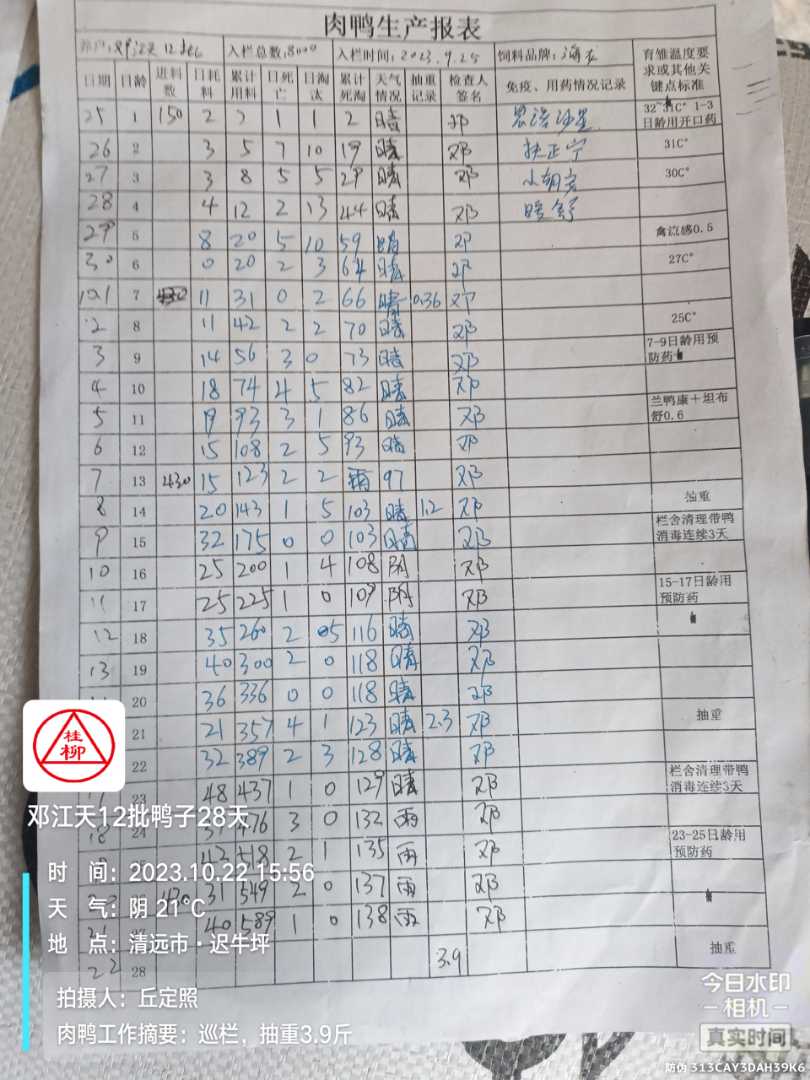 肉鸭生产报表
邓江天 12 批 入栏总数:8000 入栏时间:2023.9.25 饲料品牌:海大 育雏温度要求或其他关键点标准
日期 日龄 进料数 日耗料 累计用料 日死亡 日淘汰 累计死淘 天气情况 抽重记录 检查人签名 免疫、用药情况记录
25 1 150 2 2 1 1 2 晴 邓 32-31C° 1-3日龄用开口药
26 2 3 5 7 10 19 晴 邓 扶正宁 31C°
27 3 3 8 5 5 29 晴 邓 30C°
28 4 4 12 2 13 44 晴 邓 暖舒
29 5 8 20 5 10 59 晴 邓 禽流感0.5
30 6 0 20 2 3 64 晴 邓 27C°
10.1 7 11 31 0 2 66 晴 0.36 邓
2 8 11 42 2 2 70 晴 邓 25C°
3 9 14 56 3 0 73 晴 邓 7-9日龄用预防药
4 10 18 74 4 5 82 晴 邓
5 11 19 93 3 1 86 晴 邓 兰鸭康+坦布舒0.6
6 12 15 108 2 5 93 晴 邓
7 13 430 15 123 2 2 97 邓
8 14 20 143 1 5 103 晴 1.2 邓 抽重
9 15 32 175 0 0 103 晴 邓 栏舍清理带鸭消毒连续3天
10 16 25 200 1 4 108 阴 邓
11 17 25 225 1 0 109 阴 邓 15-17日龄用预防药
12 18 35 260 2 5 116 晴 邓
13 19 40 300 2 0 118 晴 邓
20 36 336 0 0 118 晴 邓
21 21 357 4 1 123 晴 2.3 邓 抽重
22 32 389 2 3 128 晴 邓
48 437 1 0 129 晴 邓 栏舍清理带鸭消毒连续3天
24 476 3 0 132 雨 邓
518 2 1 135 雨 邓 23-25日龄用预防药
31 549 2 0 137 雨 邓
40 589 1 0 138 雨 邓
22 28 3.9 抽重
桂柳
邓江天12批鸭子28天
时 间:2023.10.22 15:56
天 气:阴 21℃
地 点:清远市·迟牛坪
拍摄人:丘定照
肉鸭工作摘要:巡栏,抽重3.9斤
今日水印
相机
真实时间
防伪 313CAY3DAH39K6